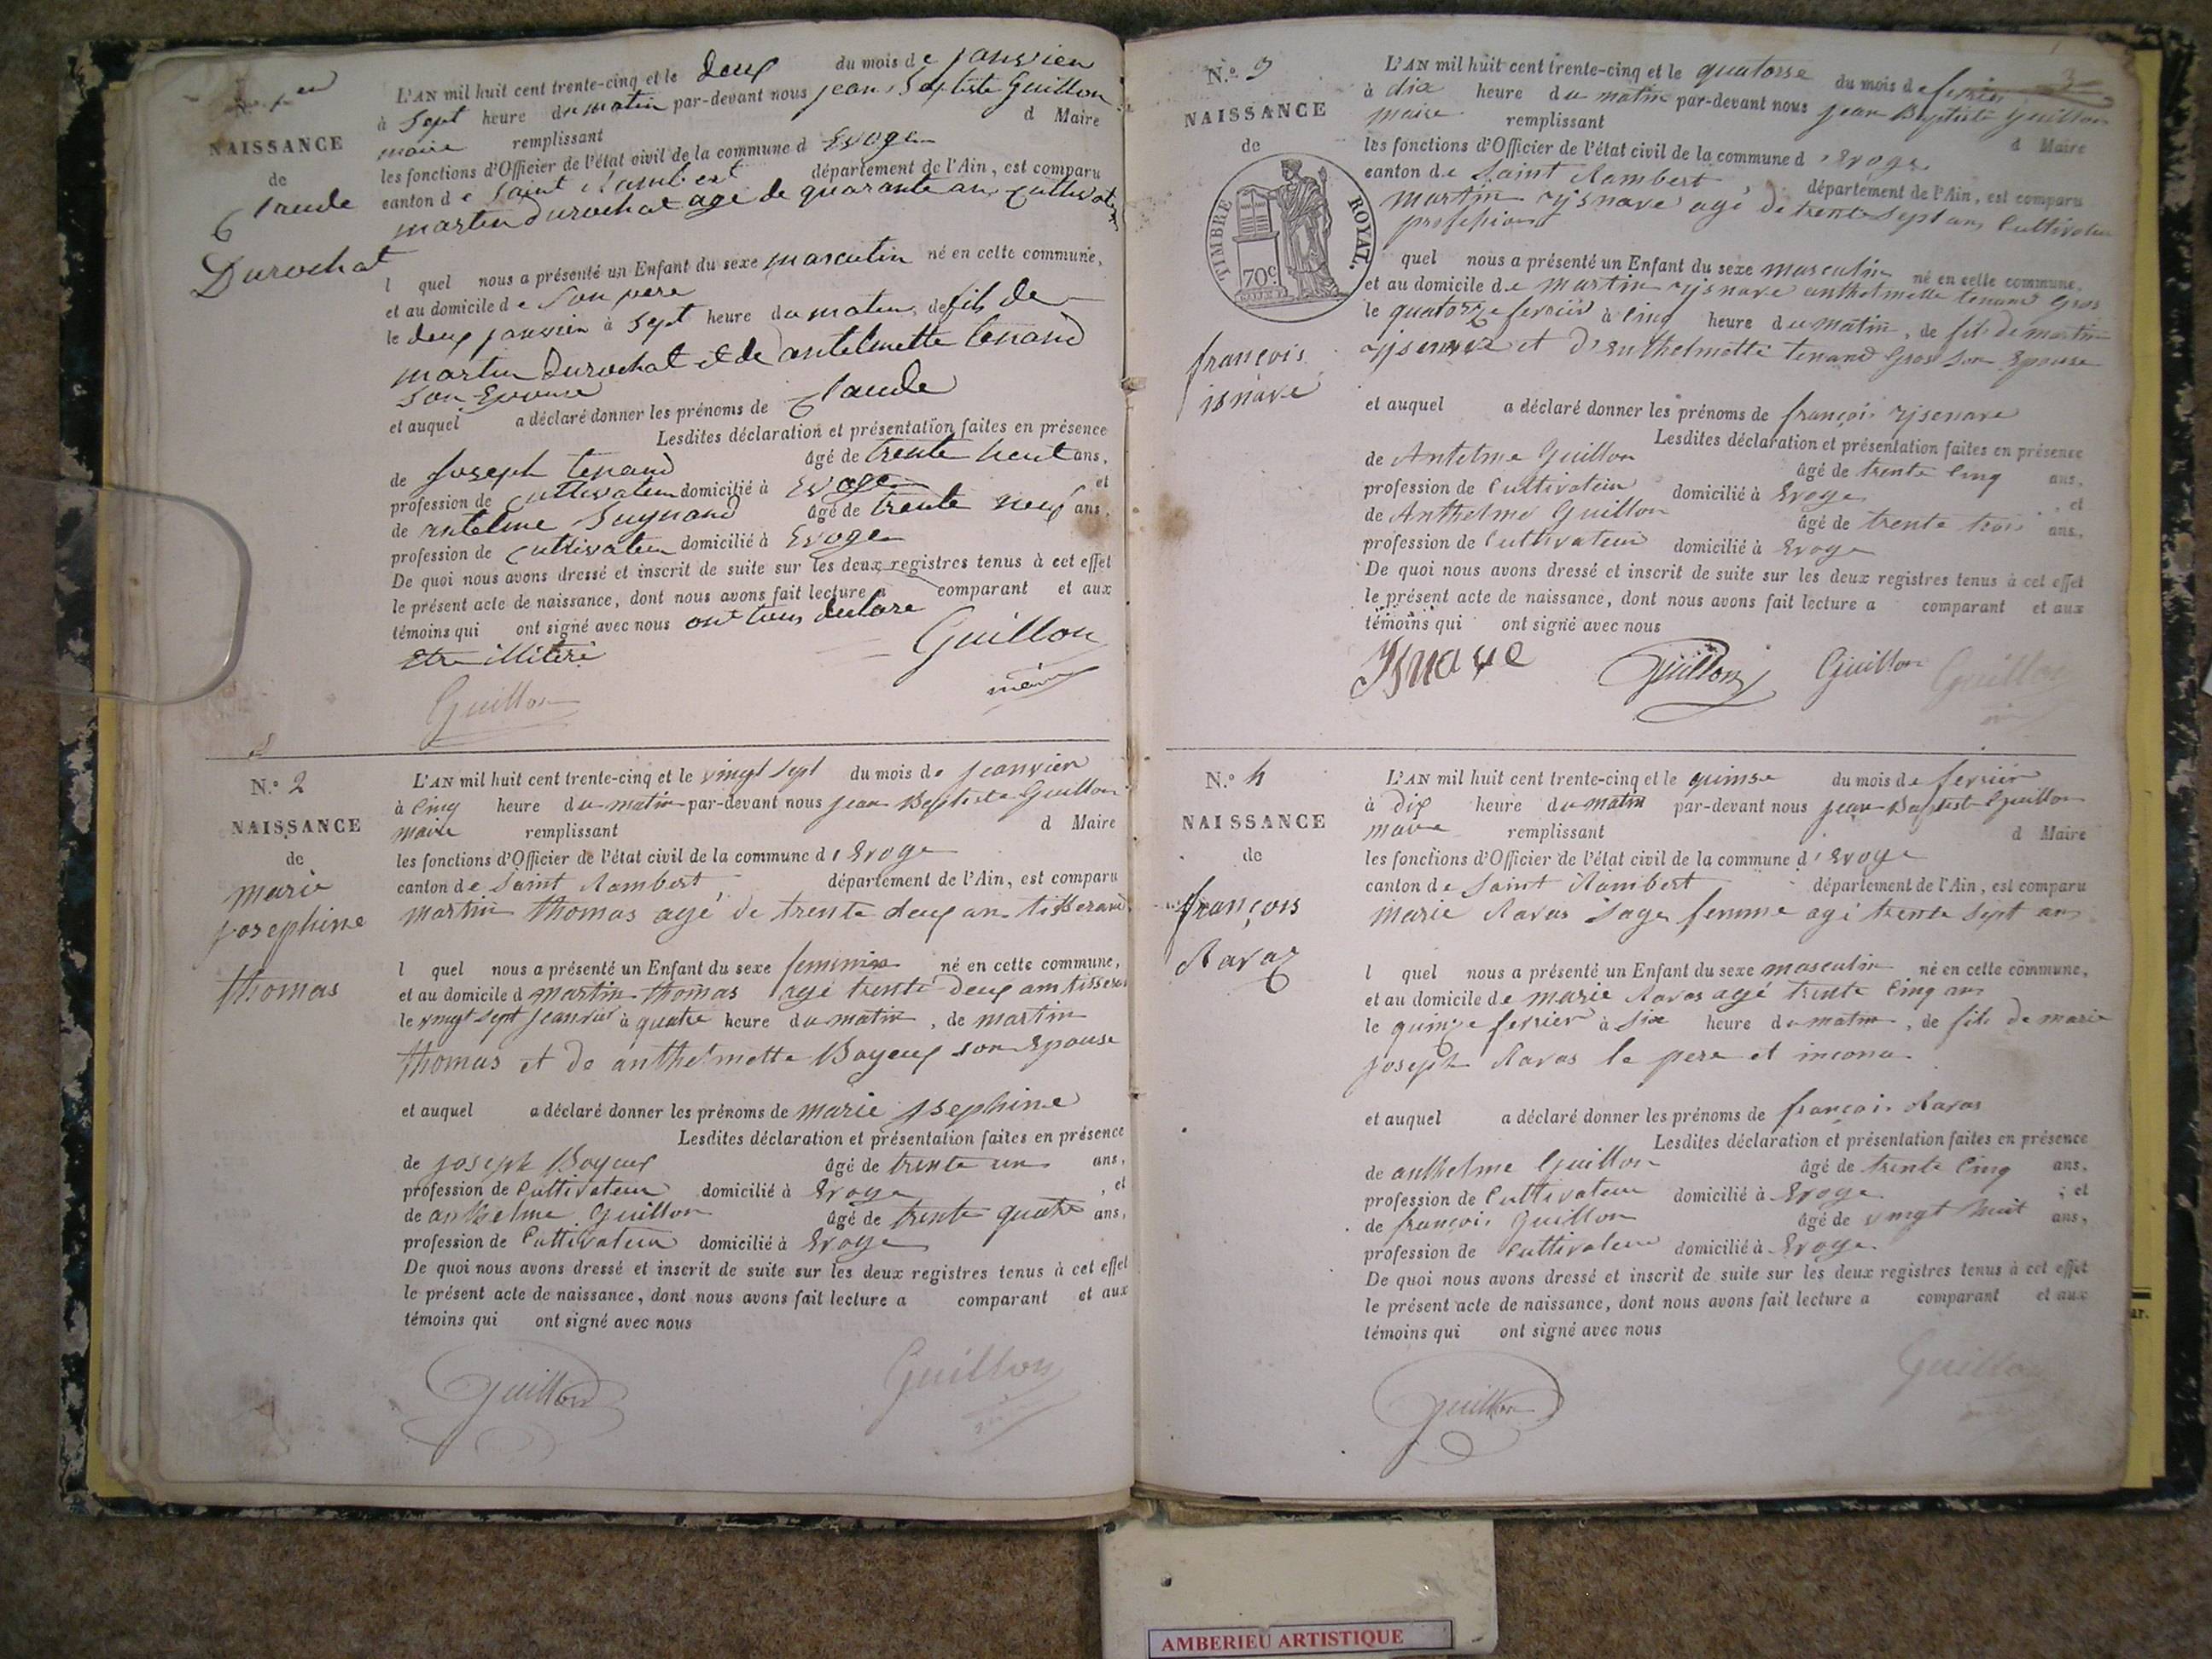 N.º 1er
NAISSANCE
de
Claude
Durochat
L'AN mil huit cent trente-cinq et le deux du mois de janvier
à sept heure du matin par-devant nous jean Baptiste Guillon
maire remplissant d Maire
les fonctions d'Officier de l'état civil de la commune d Evoge
canton de Saint Rambert département de l'Ain, est comparu
martin durochat age de quarante an Cultivateur
l quel nous a présenté un Enfant du sexe masculin né en cette commune,
et au domicile de son pere
le deux janvier à sept heure du matin, de fils de
martin durochat et de antelmette tenand
son Epouse
et auquel a déclaré donner les prénoms de Claude
Lesdites déclaration et présentation faites en présence
de joseph tenand âgé de trente heut ans,
profession de Cultivateur domicilié à Evoge et
de antelme Juynand âgé de trente neuf ans,
profession de Cultivateur domicilié à Evoge
De quoi nous avons dressé et inscrit de suite sur les deux registres tenus à cet effet
le présent acte de naissance, dont nous avons fait lecture a comparant et aux
témoins qui ont signé avec nous ont tous declare
Etre illiteré
Guillon
maire
Guillon
N.º 2
NAISSANCE
de
marie
josephine
thomas
L'AN mil huit cent trente-cinq et le vingt sept du mois de jeanvier
à cinq heure du matin par-devant nous jean Baptiste Guillon
maire remplissant d Maire
les fonctions d'Officier de l'état civil de la commune d'Evoge
canton de Saint Rambert, département de l'Ain, est comparu
martin thomas agé de trente deux an tisserand
l quel nous a présenté un Enfant du sexe feminin né en cette commune,
et au domicile d martin thomas agé trente deux an tisseran
le vingt sept jeanvier à quatre heure du matin, de martin
thomas et de anthelmette Boyeux son Epouse
et auquel a déclaré donner les prénoms de marie josephine
Lesdites déclaration et présentation faites en présence
de joseph Boyeux âgé de trente un ans,
profession de Cultivateur domicilié à Evoge, et
de anthelme Guillon âgé de trente quatre ans,
profession de Cultivateur domicilié à Evoge
De quoi nous avons dressé et inscrit de suite sur les deux registres tenus à cet effet
le présent acte de naissance, dont nous avons fait lecture a comparant et aux
témoins qui ont signé avec nous
Guillon
Guillon
3
N.º 3
NAISSANCE
de
TIMBRE ROYAL.
70c
françois
isnave
L'AN mil huit cent trente-cinq et le quatorse du mois de fevrier
à dix heure du matin par-devant nous jean Baptiste Guillon
maire remplissant d Maire
les fonctions d'Officier de l'état civil de la commune d'Evoge
canton de Saint Rambert, département de l'Ain, est comparu
martin yjsnave agé de trente sept ans Cultivateur
profession
quel nous a présenté un Enfant du sexe masculin né en cette commune,
et au domicile de martin yjsnave anthelmette tenand Gros
le quatorze fevrier à cinq heure du matin, de fils de martin
yjsenave et d'anthelmette tenand Gros son Epouse
et auquel a déclaré donner les prénoms de françois yjsenave
Lesdites déclaration et présentation faites en présence
de Antelme Guillon âgé de trente cinq ans,
profession de Cultivateur domicilié à Evoge, et
de Anthelme Guillon âgé de trente trois ans,
profession de Cultivateur domicilié à Evoge
De quoi nous avons dressé et inscrit de suite sur les deux registres tenus à cet effet
le présent acte de naissance, dont nous avons fait lecture a comparant et aux
témoins qui ont signé avec nous
Isnave Guillon Guillon Guillon
N.º 4
NAISSANCE
de
françois
Ravaz
L'AN mil huit cent trente-cinq et le quinse du mois de fevrier
à dix heure du matin par-devant nous jean Baptiste Guillon
maire remplissant d Maire
les fonctions d'Officier de l'état civil de la commune d'Evoge
canton de Saint Rambert département de l'Ain, est comparu
marie Ravas sage femme agé trente sept ans
l quel nous a présenté un Enfant du sexe masculin né en cette commune,
et au domicile de marie Ravas agé trente cinq ans
le quinze fevrier à six heure du matin, de fils de marie
joseph Ravas le pere et inconu
et auquel a déclaré donner les prénoms de françois Ravas
Lesdites déclaration et présentation faites en présence
de anthelme Guillon âgé de trente cinq ans,
profession de Cultivateur domicilié à Evoge; et
de françois Guillon âgé de vingt huit ans,
profession de Cultivateur domicilié à Evoge
De quoi nous avons dressé et inscrit de suite sur les deux registres tenus à cet effet
le présent acte de naissance, dont nous avons fait lecture a comparant et aux
témoins qui ont signé avec nous
Guillon
Guillon
AMBERIEU ARTISTIQUE